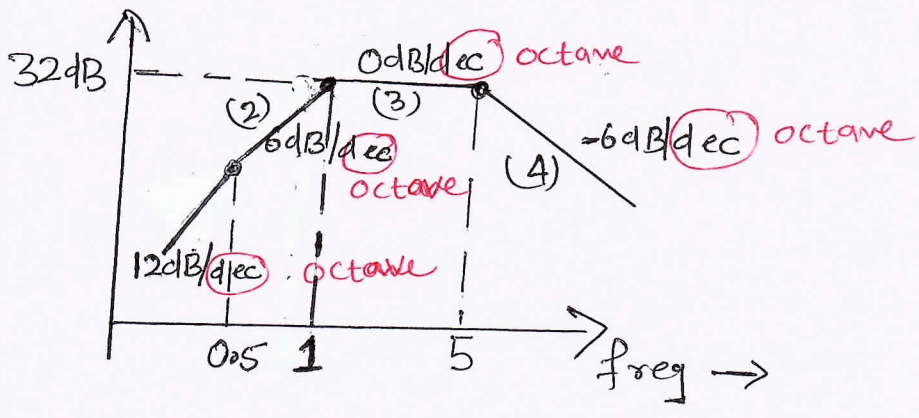 0dB/dec octave
32dB
(2)
(3)
6dB/dec
octave
-6dB/dec octave
(4)
12dB/dec octave
0.5
1
5
freq →